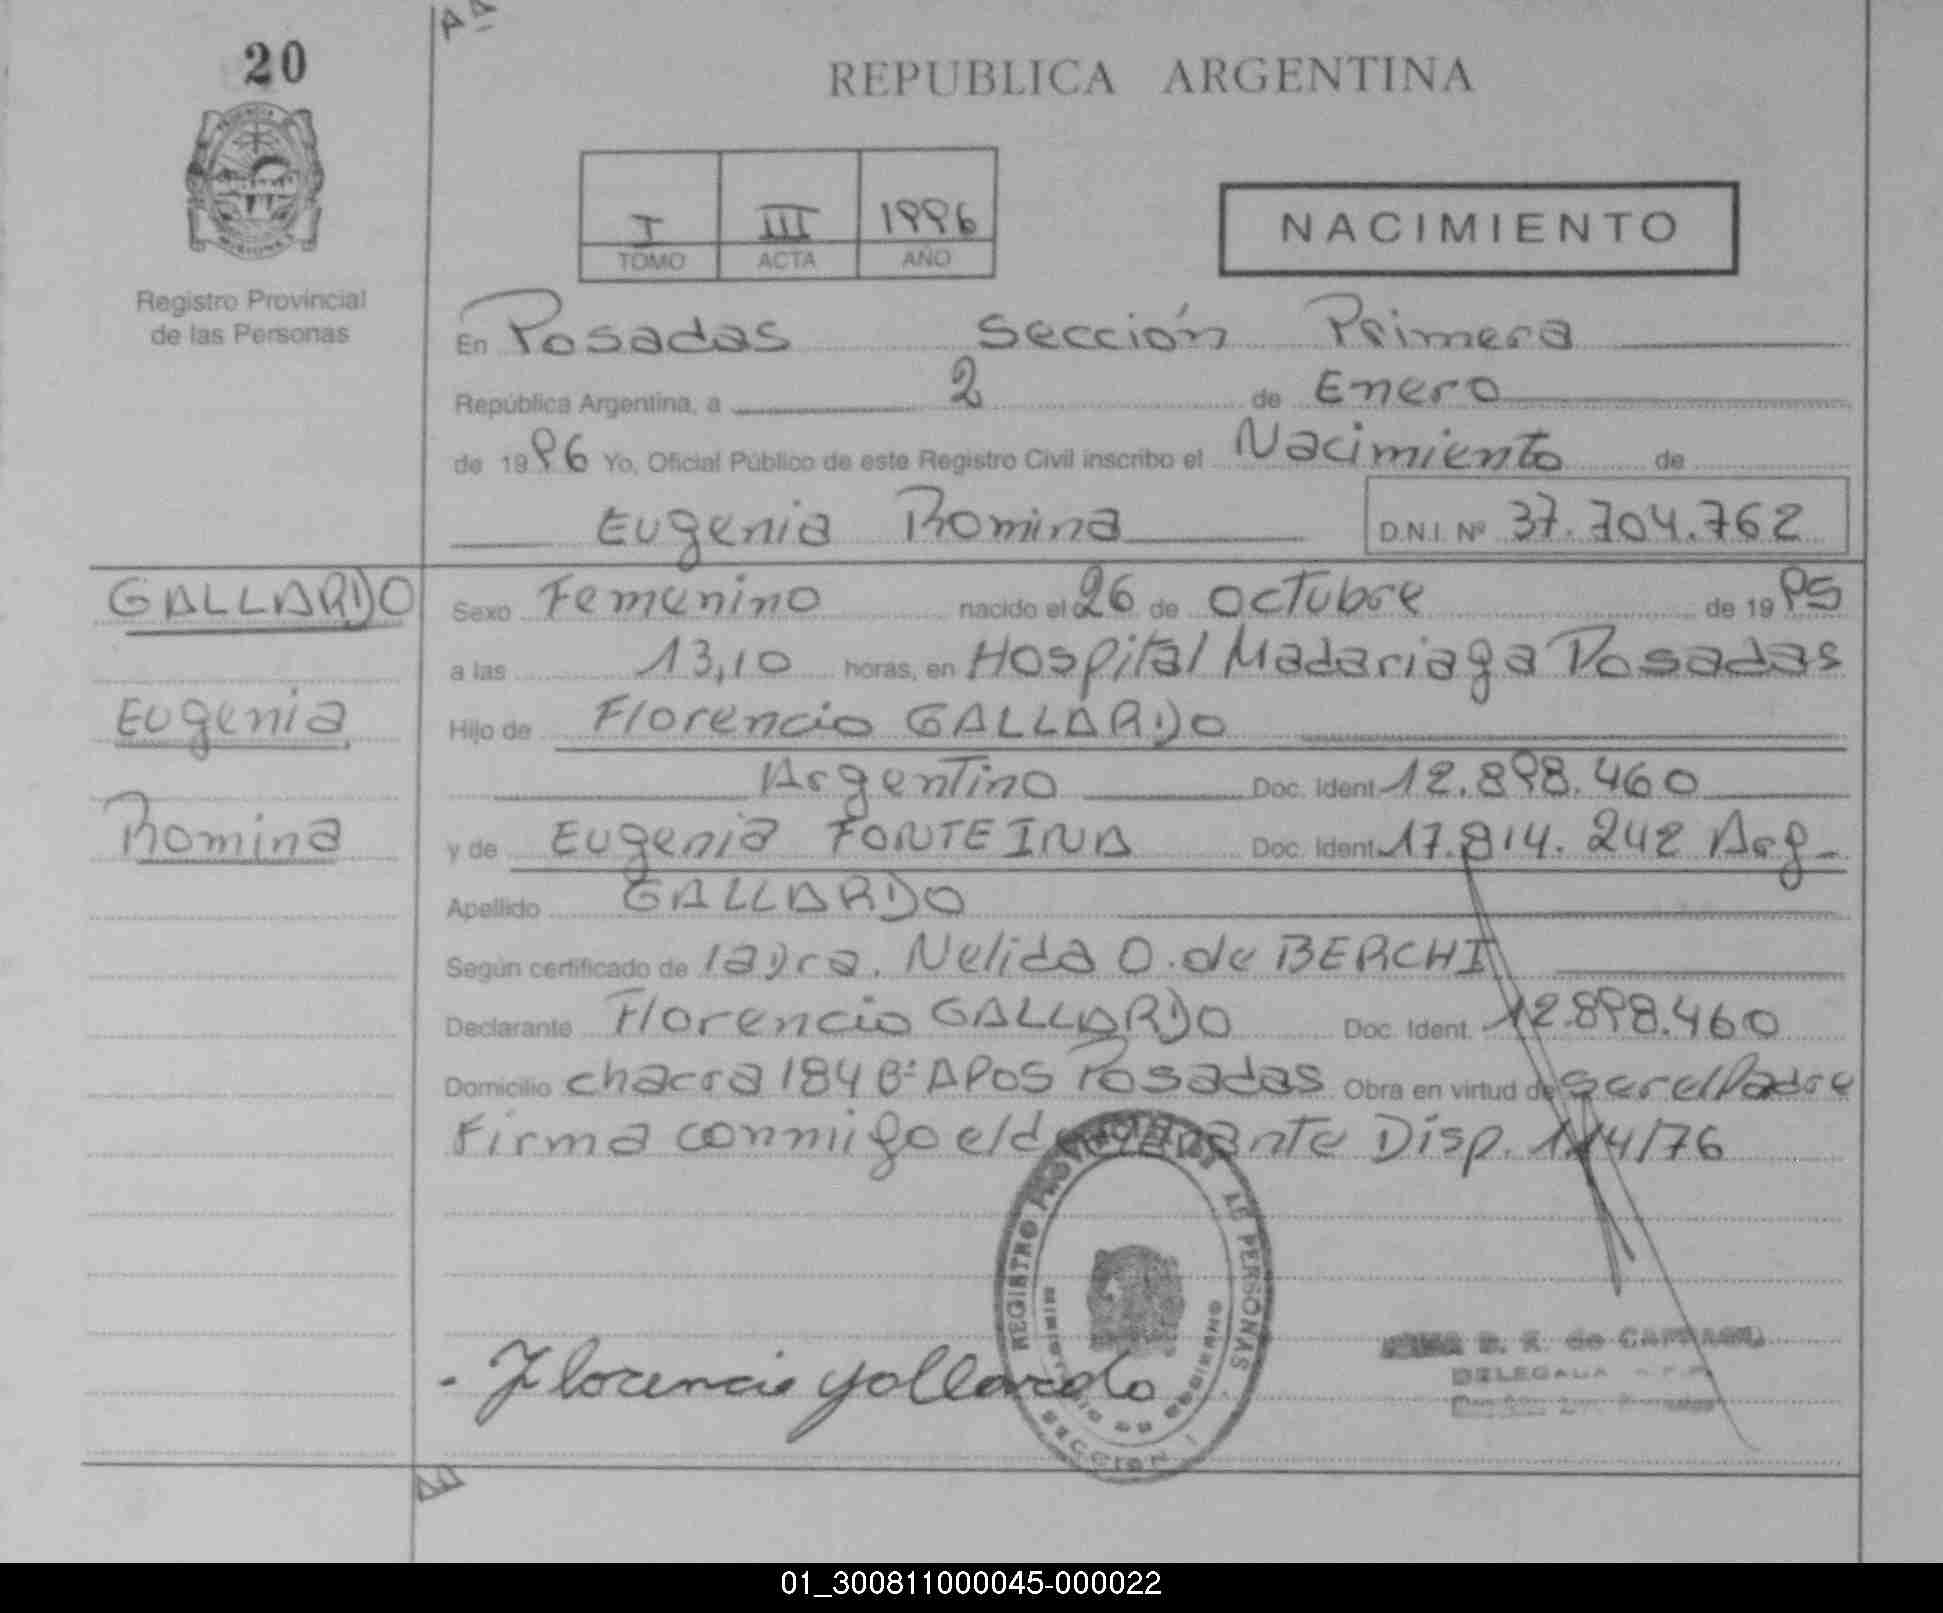 20
REPUBLICA ARGENTINA
I III 1996
TOMO ACTA AÑO
NACIMIENTO
Registro Provincial
de las Personas
En Posadas Sección Primera
República Argentina, a 2 de Enero
de 1996 Yo, Oficial Público de este Registro Civil inscribo el Nacimiento de
Eugenia Romina D.N.I. Nº 37.704.762
GALLARDO
Eugenia
Romina
Sexo Femenino nacido el 26 de octubre de 1995
a las 13,10 horas, en Hospital Madariaga Posadas
Hijo de Florencio GALLARDO
Argentino Doc. Ident 12.898.460
y de Eugenia FONTEINA Doc. Ident 17.814.242 Arg
Apellido GALLARDO
Según certificado de la Dra. Nelida O. de BERCHI
Declarante Florencio GALLARDO Doc. Ident. 12.898.460
Domicilio chacra 184 Bº APOS Posadas Obra en virtud de ser el Padre
Firma conmigo el declarante Disp. 114/76
REGISTRO PROVINCIAL DE PERSONAS
MINISTERIO DE GOBIERNO
SECCION 1
Florencio Gallardo
DELEGADA
01_300811000045-000022